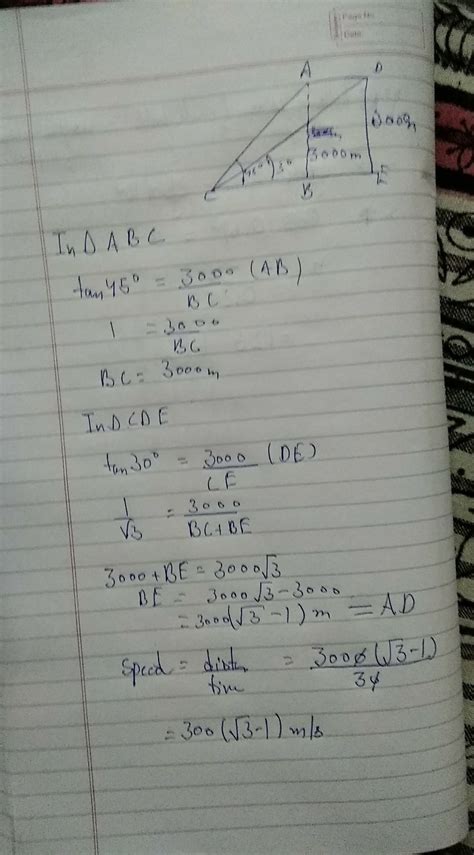 Page No.
Date
A D
3000m
45° 30
3000m
C B E
In Δ ABC
tan 45° = 3000 (AB)
BC
1 = 3000
BC
BC = 3000m
In D CDE
tan 30° = 3000 (DE)
CE
1 = 3000
√3 BC+BE
3000 + BE = 3000√3
BE = 3000√3 - 3000
= 3000(√3 - 1) m = AD
Speed = = 3000 (√3-1)
30
= 300 (√3-1) m/s